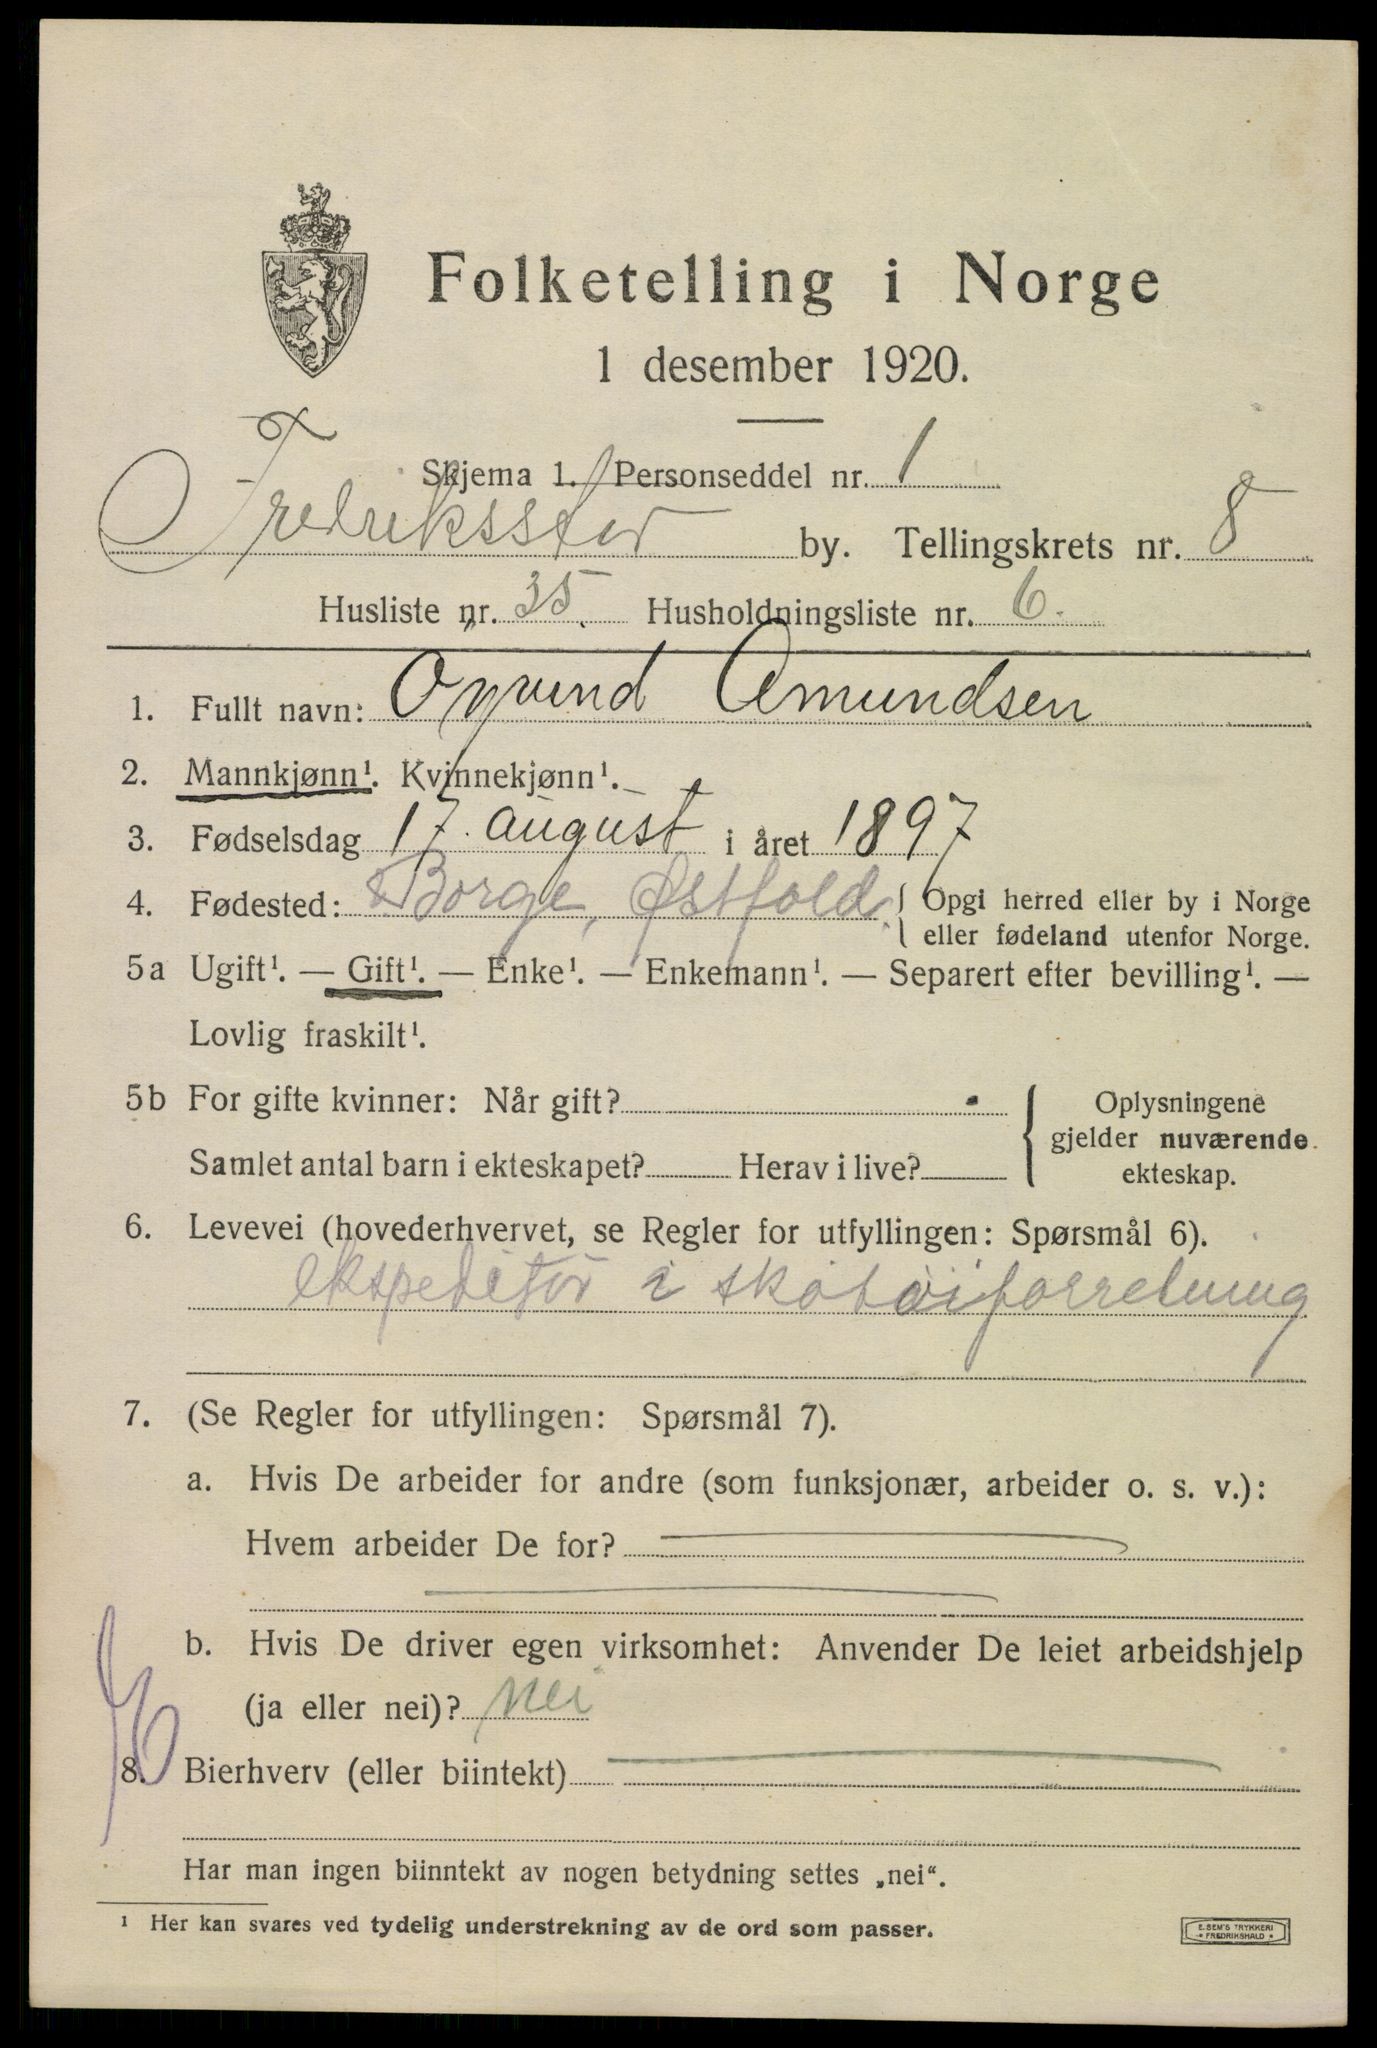 Folketelling i Norge
1 desember 1920.
Skjema 1. Personseddel nr. 1
Fredriksstad by. Tellingskrets nr. 8
Husliste nr. 35. Husholdningsliste nr. 6.
1. Fullt navn: Öyvind Amundsen
2. Mannkjønn¹. Kvinnekjønn¹.
3. Fødselsdag 17. august i året 1897
4. Fødested: Borge, Østfold. { Opgi herred eller by i Norge
{ eller fødeland utenfor Norge.
5a Ugift¹. — Gift¹. — Enke¹. — Enkemann¹. — Separert efter bevilling¹. —
Lovlig fraskilt¹.
5b For gifte kvinner: Når gift?
Samlet antal barn i ekteskapet? Herav i live?
{ Oplysningene
gjelder nuværende
ekteskap.
6. Levevei (hovederhvervet, se Regler for utfyllingen: Spørsmål 6).
ekspeditör i skotöiforretning
7. (Se Regler for utfyllingen: Spørsmål 7).
a. Hvis De arbeider for andre (som funksjonær, arbeider o. s. v.):
Hvem arbeider De for?
b. Hvis De driver egen virksomhet: Anvender De leiet arbeidshjelp
(ja eller nei)? nei
8. Bierhverv (eller biintekt)
Har man ingen biinntekt av nogen betydning settes „nei“.
¹ Her kan svares ved tydelig understrekning av de ord som passer.
E. SEM'S TRYKKERI
FREDRIKSHALD